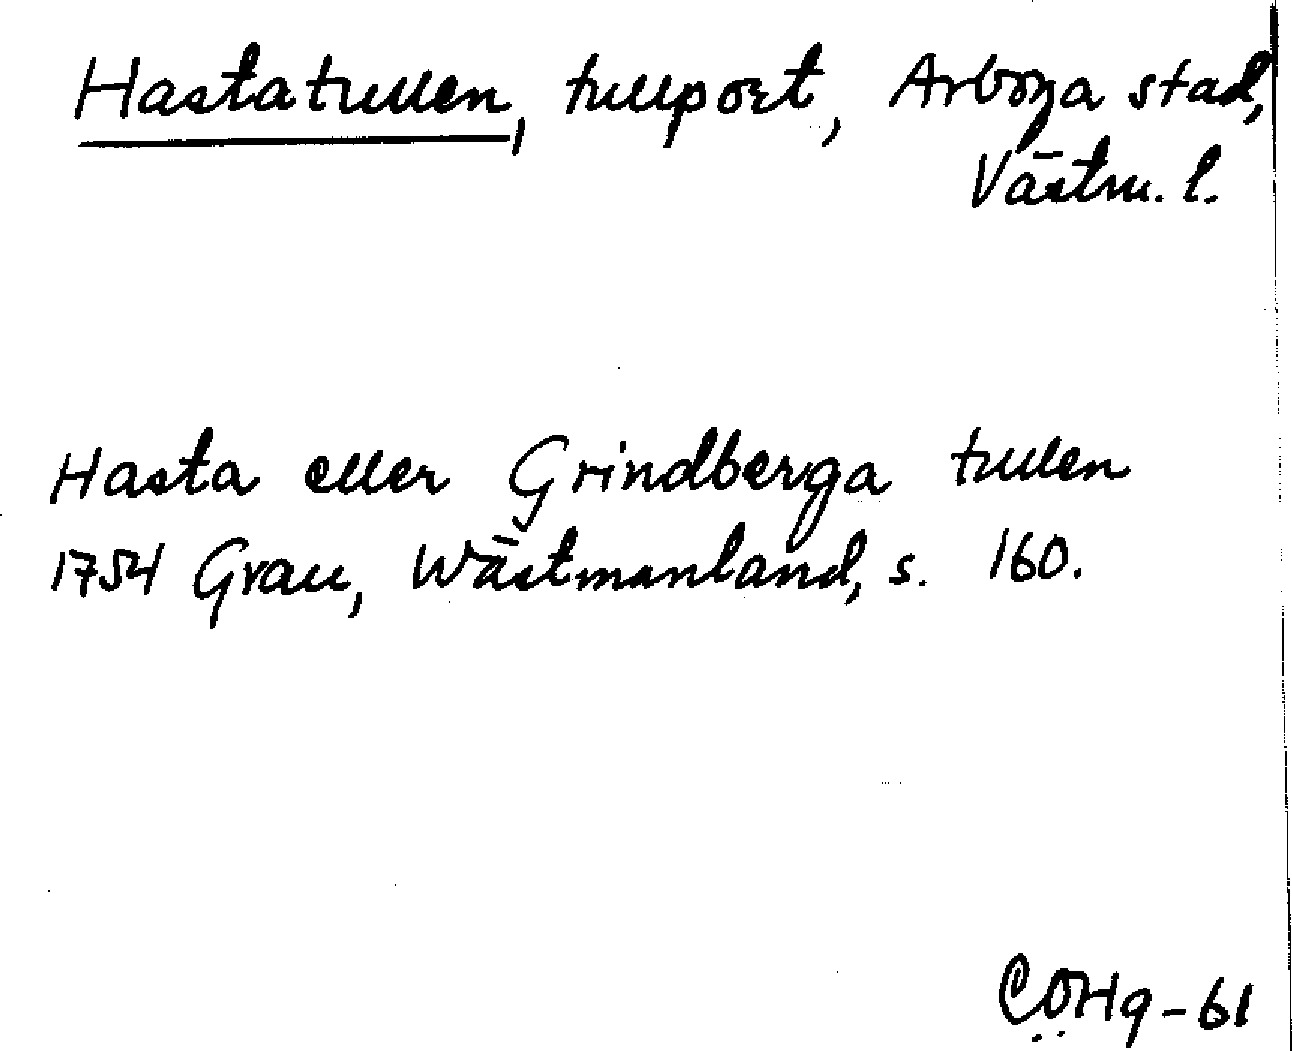 Hastatullen, tullport, Arboga stad,
Västm. l.
Hasta eller Grindberga tullen
1754 Grau, Wästmanland, s. 160.
COHg-61